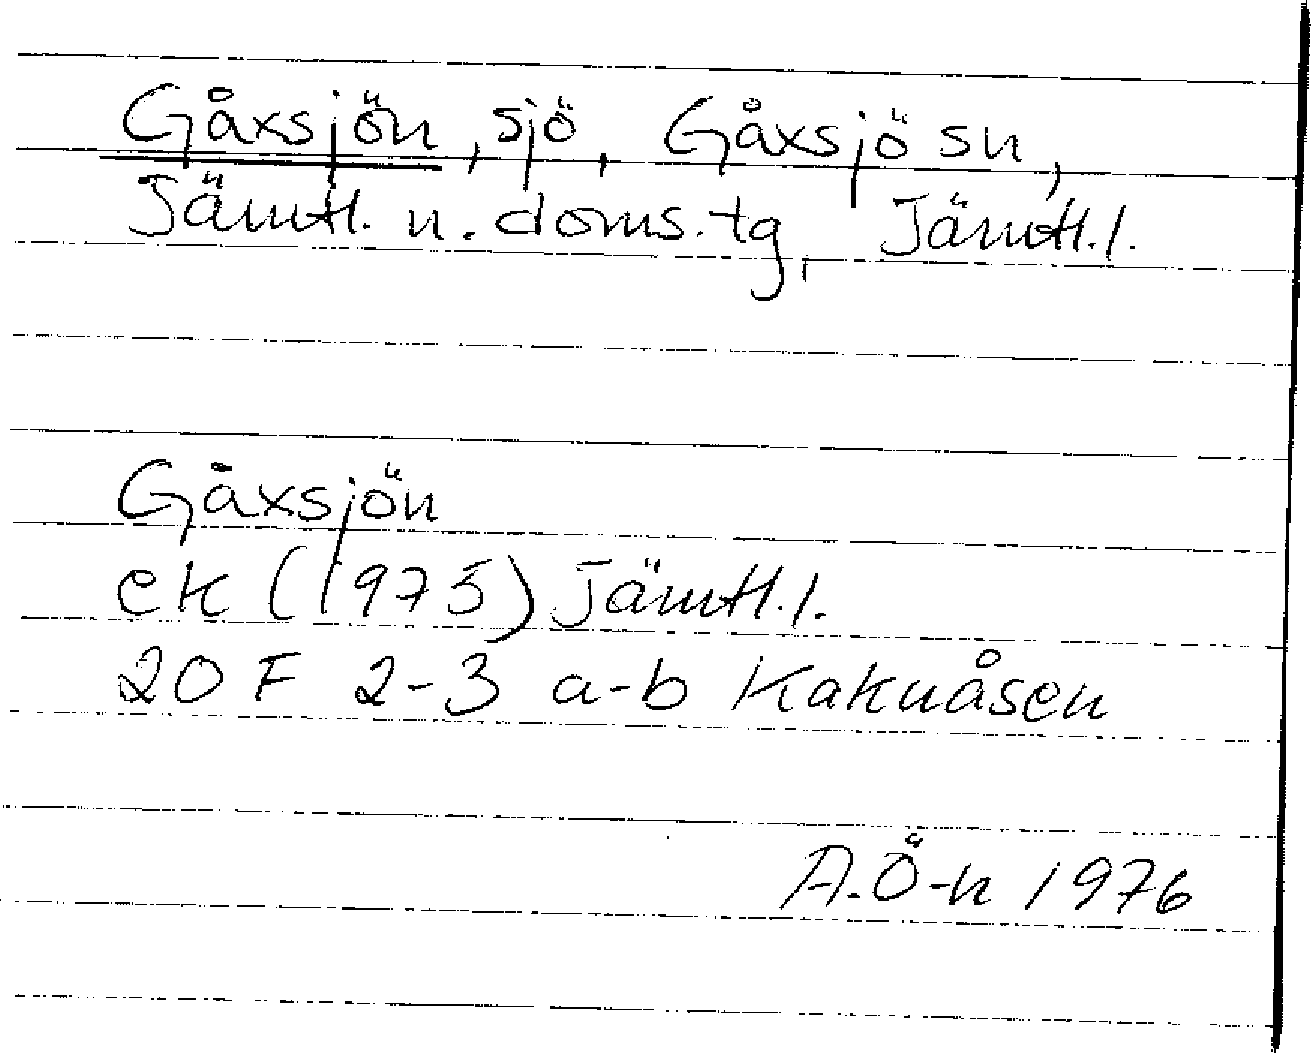 Gåxsjön, sjö, Gåxsjö sn,
Jämtl. n. doms. tg, Jämtl. l.
Gåxsjön
ek (1975) Jämtl. l.
20 F 2-3 a-b Kaknåsen
A. Ö-n 1976